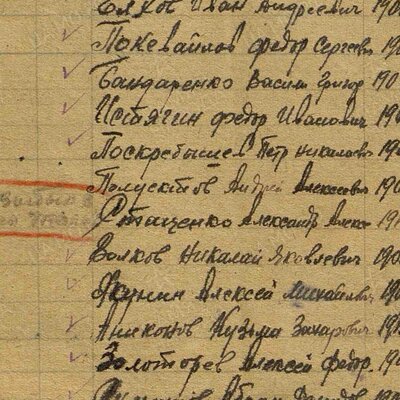 Иван Андреевич 190
Покевайлов Федор Сергеевич 19
Бандаренко Васили Григор 190
Истягин Федор Иванович 19
Поскребышев Петр Николаевич 19
Полуектов Андрей Алексеевич 19
Стаценко Александр Алекса 19
Волков Николай Яковлевич 190
Якунин Алексей Михайлович 190
Аниконов Кузьма Захарович 19
Золоторев Алексей Федор. 19